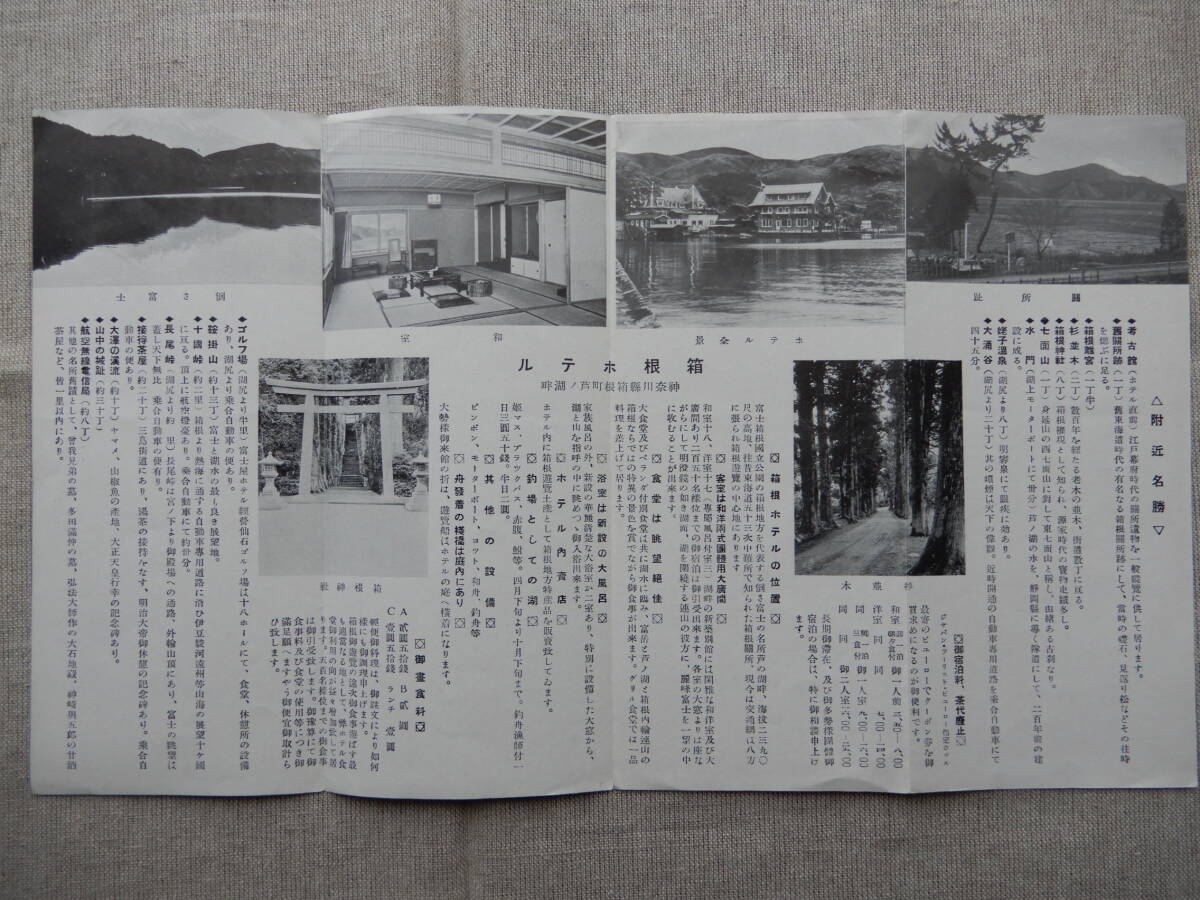 關所趾
ホテル全景
和室
倒さ富士
△附近名勝▽
◆考古館(ホテル直前)江戸幕府時代の關所遺物を一般觀覽に供して居ります。
◆舊關所跡(一丁)舊東海道時代の有名なる箱根關所跡にして、當時の礎石、見返り松などその往時
を偲ぶに足る。
◆箱根離宮(一丁半)
◆杉並木(二丁)數百年を經たる老木の並木、街道數丁に亙る。
◆箱根神社(八丁)箱根權現として知られ、源家時代の寶物史蹟多し。
◆七面山(一丁)身延山の西七面山に對して東七面山と稱し、由緒ある古刹なり。
◆水門(湖上モーターボートにて卅分)芦ノ湖の水を、靜岡縣に導く隊道にして、二百年前の建
設に成る。
◆姥子溫泉(湖尻より八丁)明礬泉にて眼疾に効あり。
◆大涌谷(湖尻より二十丁)其の噴煙は天下の偉觀。近時開通の自動車專用道路を乘合自動車にて
四十五分。
杉並木
◙御宿泊料、茶代廢止◙
ジヤパン・ツーリスト・ビユーロー指定ホテル
最寄のビユーローでクーポン券を御
買求めになるのが御便利です。
和室 御一泊 朝夕食付 御一人前 三、五〇―八、〇〇
洋室 同 同 七、〇〇―一四、〇〇
同 御一泊 三食付 御一人室 九、〇〇―
同 同 御二人室 一六、〇〇―二六、〇〇
長期御滯在、及び御多勢樣團體御
宿泊の場合は、特に御相談申上げ
ます。
箱根ホテル
神奈川縣箱根町芦ノ湖畔
◙箱根ホテルの位置◙
富士箱根國立公園の箱根地方を代表する倒さ富士の名所芦の湖畔、海拔二三九〇
尺の高地、往昔東海道五十三次中難所で知られた箱根關所、現今は交通網は八方
に張られ箱根遊覽の中心地にあります
◙客室は和洋兩式團體用大廣間◙
和室十八、洋室十七(專屬風呂付室三)湖畔の新築別館には閑雅な和洋室及び大
廣間あり二百五十名樣位までの御宿泊は御引受出來ます。各室の大窓よりは座な
がらにして明澄鏡の如き湖面、湖を圍繞する連山の彼方に、麗峰富士を一望の中
に收むることが出來ます。
◙食堂は眺望絕佳◙
大食堂及びベランダ付別食堂は共に湖水に臨み、富岳と芦ノ湖と箱根内輪連山の
箱根ならではの特異の景色を賞でながら御食事が出來ます。グリル食堂では一品
料理を差上げて居ります。
◙浴室は新設の大風呂◙
家族風呂の外、新設の華麗清楚な大浴室が二室あり、特別に設備した大窓から、
湖と山を指呼の中に眺めつゝ御入浴出來ます。
◙ホテル內賣店◙
ホテル内に箱根遊覽土產として箱根地方特產品を販賣致してゐます。
◙釣場としての湖◙
姬マス、ブラツクバス、赤腹、鮒等。四月下旬より十月下旬まで。釣舟漁師付一
日三圓五十錢。半日二圓。
◙其他の設備◙
ピンポン、モーターボート、ヨツト、和舟、釣舟等
◙舟發着の棧橋は庭内にあり◙
大勢樣御來館の折は、遊覽船はホテルの庭へ橫着になります。
箱根神社
◙御晝食料◙
A 貳圓五拾錢 B 貳圓
C 壹圓五拾錢 ランチ 壹圓
輕便御料理は、御註文により如何
樣にも御調理申上げます。
箱根御遊覽の途次御食事遊ばす最
も適當なる地として、弊ホテル食
堂御利用の向が益々增加致して居
ります。五百名樣位までの御食事
は御引受致します。御豫算にて御
食事料及び食堂の使用等につき御
滿足願へますやう御便宜御取計ら
ひ致します。
◆ゴルフ場(湖尻より半里)富士屋ホテル經營仙石ゴルフ場は十八ホールにて、食堂、休憩所の設備
あり、湖尻より乘合自動車の便あり。
◆鞍掛山(約十三丁)富士と湖水の最も良き展望地。
◆十國峠(約二里)箱根より熱海に通ずる自動車專用道路に沿ひ伊豆駿河遠州等山海の展望十ヶ國
に亙る。頂上に航空燈臺あり。乘合自動車にて約卅分。
◆長尾峠(湖尻より約一里)長尾峠は宮ノ下より御殿場への通路、外輪山頂にあり、富士の眺望は
蓋し天下無比 乘合自動車の便有り。
◆接待茶屋(約二十丁)三島街道にあり、湯茶の接待をなす、明治大帝御休憩の記念碑あり。乘合自
動車の便あり。
◆大澤の溪流(約十丁)ヤマメ、山椒魚の產地、大正天皇行幸の記念碑あり。
◆山中の城趾(約三十丁)
◆航空無線電信局(約八丁)
其他の名所舊蹟として、曾我兄弟の墓、多田滿仲の墓、弘法大師作の大石地藏、神崎與五郎の甘酒
茶屋など、皆一里以內にあり。